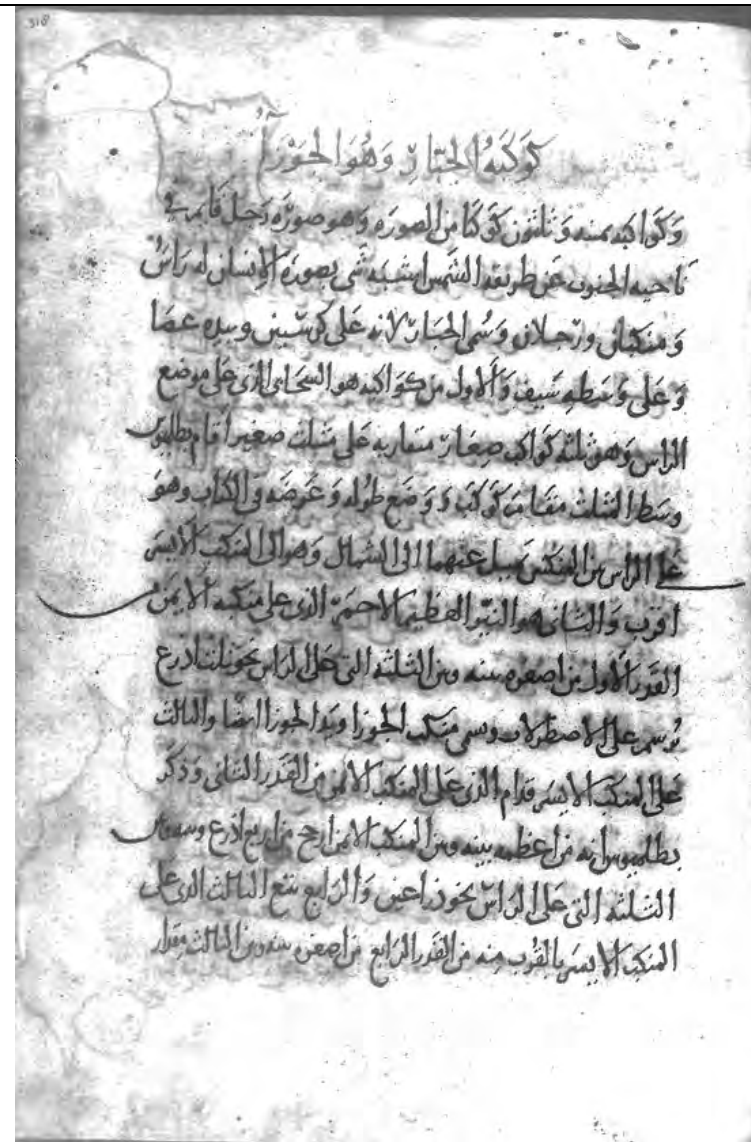 318
كوكبة الجبار وهو الجوزاء
وكواكبه ثمنيه وثلثون كوكبا من الصورة وهو صورة رجل قايم في
ناحيه الجنوب عن طريقه الشمس اشبه شى بصورة الانسان له راس
ومنكبان ورجلان وسمى الجبار لانه على كرسيين وبيده عصا
وعلى وسطه سيف والاول من كواكبه هو السحابى الذى على موضع
الراس وهو ثلثه كواكب صغار متقاربه على مثلث صغير اقام بطلميوس
وسط المثلث مقام كوكب ووضع طوله وعرضه فى الكتاب وهو
على الراس بين المنكبين يميل عنهما الى الشمال وهو الى المنكب الايسر
اقرب والثانى هو النير العظيم الاحمر الذى على منكبه الايمن
القدر الاول من اصغره بينه وبين الثلثه التى على الراس نحو ثلث اذرع
يرسم على الاصطرلاب وسمى منكب الجوزا ويد الجوزا ايضا والثالث
على المنكب الايسر قدام الذى على المنكب الايمن من القدر الثانى وذكر
بطلميوس انه من اعظمه بينه وبين المنكب الايمن ارجح من اربع اذرع وبينه وبين
الثلثه التى على الراس نحو ذراعين والرابع يتبع الثالث الذى على
المنكب الايسر بالقرب منه من القدر الرابع من اصغره بينه وبين الثالث مقدار